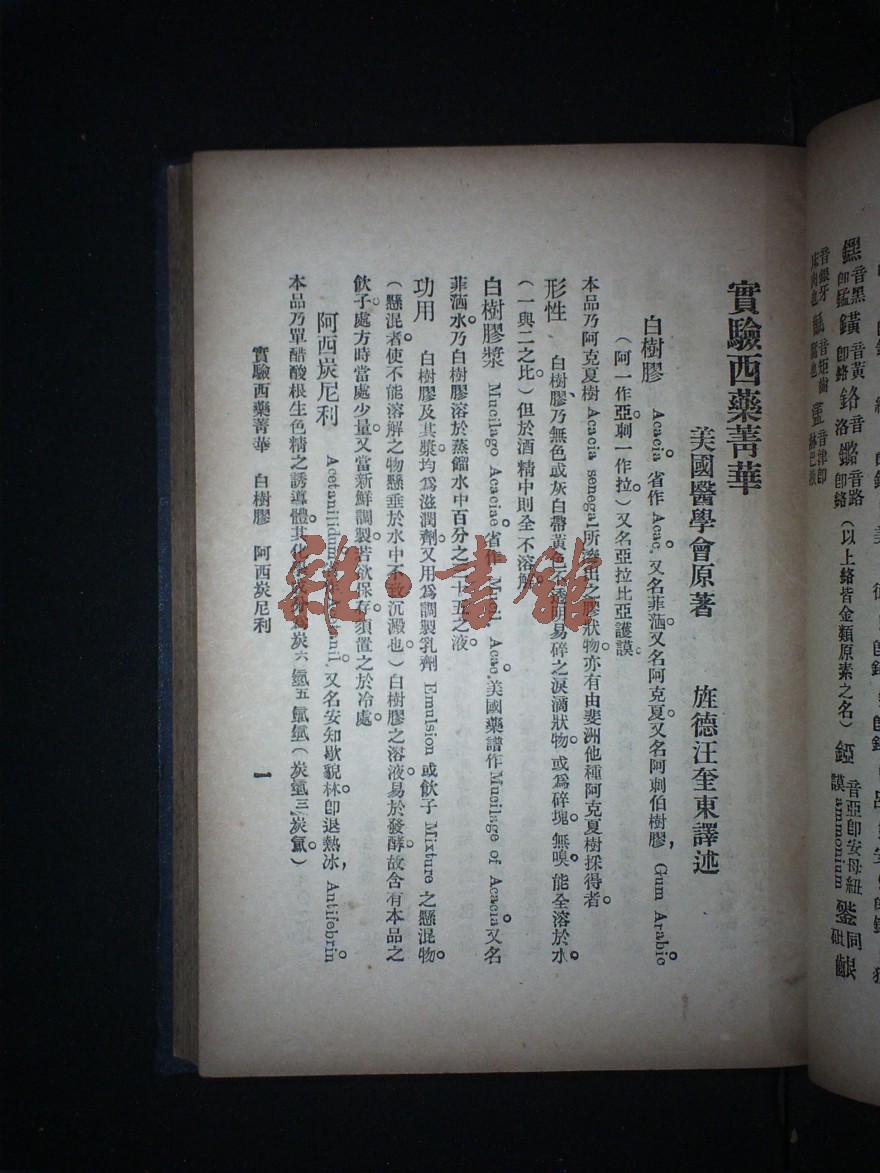 實驗西藥菁華
美國醫學會原著 旌德汪奎東譯述
白樹膠 Acacia。省作 Acac。又名菲𣽁。又名阿克夏。又名阿剌伯樹膠, Gum Arabic。
(阿一作亞。剌一作拉)又名亞拉比亞護謨。
本品乃阿克夏樹 Acacia senegal 所滲出之膠狀物。亦有由斐洲他種阿克夏樹採得者。
形性 白樹膠乃無色或灰白帶黃色。不透明易碎之淚滴狀物。或爲碎塊。無嗅。能全溶於水。
(一與二之比)但於酒精中則全不溶解。
白樹膠漿 Mucilago Acaciae。省作 Mucil. Acac。美國藥譜作 Mucilage of Acacia。又名
水。乃白樹膠溶於蒸餾水中百分之三十五之液。
功用 白樹膠及其漿均爲滋潤劑。又用爲調製乳劑 Emulsion 或飲子 Mixture 之懸混物。
(懸混者使不能溶解之物懸垂於水中不致沉澱也。)白樹膠之溶液。易於發酵。故含有本品之
飲子。處方時當處少量。又當新鮮調製。若欲保存。須置之於冷處。
阿西炭尼利 Acetanijidum 又名安知歇貌林。卽退熱冰, Antifebrin。
本品乃單醋酸根生色精之誘導體。其化學成分爲炭六氫五氮氫(炭氫三炭氧。)
實驗西藥菁華 白樹膠 阿西炭尼利 一
鏍音黑卽錳 鐄音黃卽鉻 鉻音洛 鏴音路卽鉻 (以上絡皆金類原素之名) 錏音亞卽安母紐謨 ammonium
雜·書館